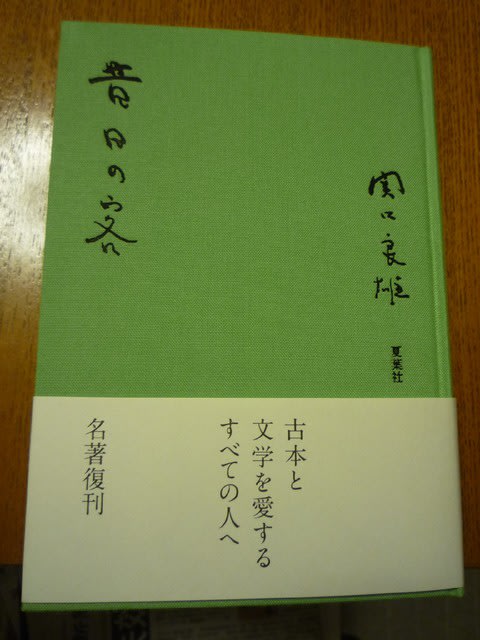 関口良雄
夏葉社
昔日の客
古本と
文学を愛する
すべての人へ
名著復刊